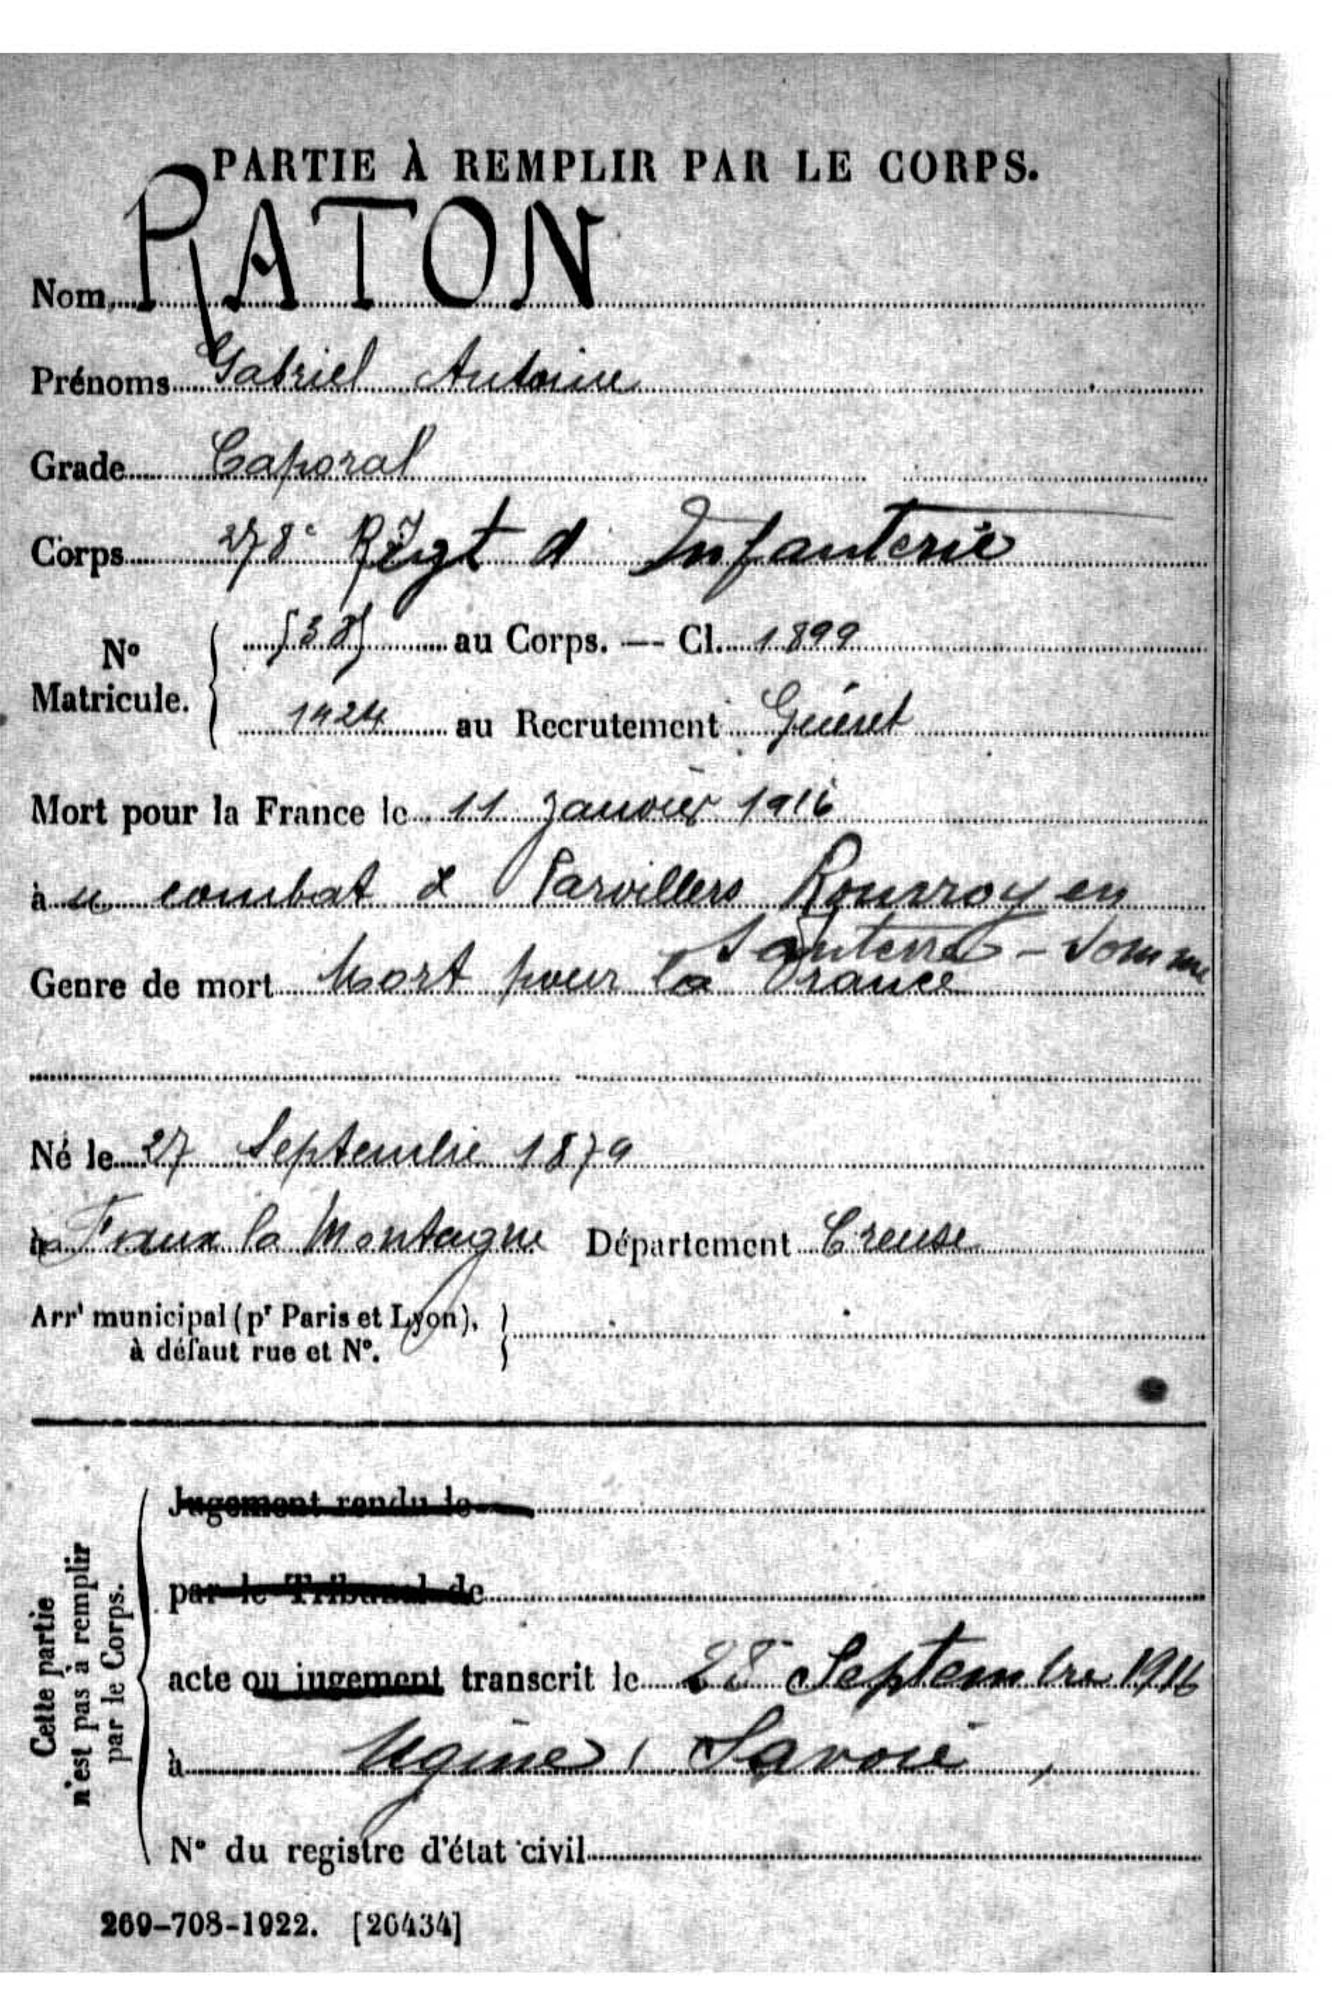 PARTIE À REMPLIR PAR LE CORPS.
Nom RATON
Prénoms Gabriel Antoine
Grade Caporal
Corps 278e Régt d Infanterie
No Matricule. { 5385 au Corps. — Cl. 1899
1424 au Recrutement Guéret
Mort pour la France le 11 Janvier 1916
à u combat d Parvillers Rouvroy en
Santerre - Somme
Genre de mort Mort pour la France
Né le 27 Septembre 1879
à Faux la Montagne Département Creuse
Arrt municipal (pr Paris et Lyon),
à défaut rue et No. }
Cette partie
n'est pas à remplir
par le Corps.
Jugement rendu le
par le Tribunal de
acte ou jugement transcrit le 28 Septembre 1916
à Ugine, Savoie,
No du registre d'état civil
269-708-1922. [26434]